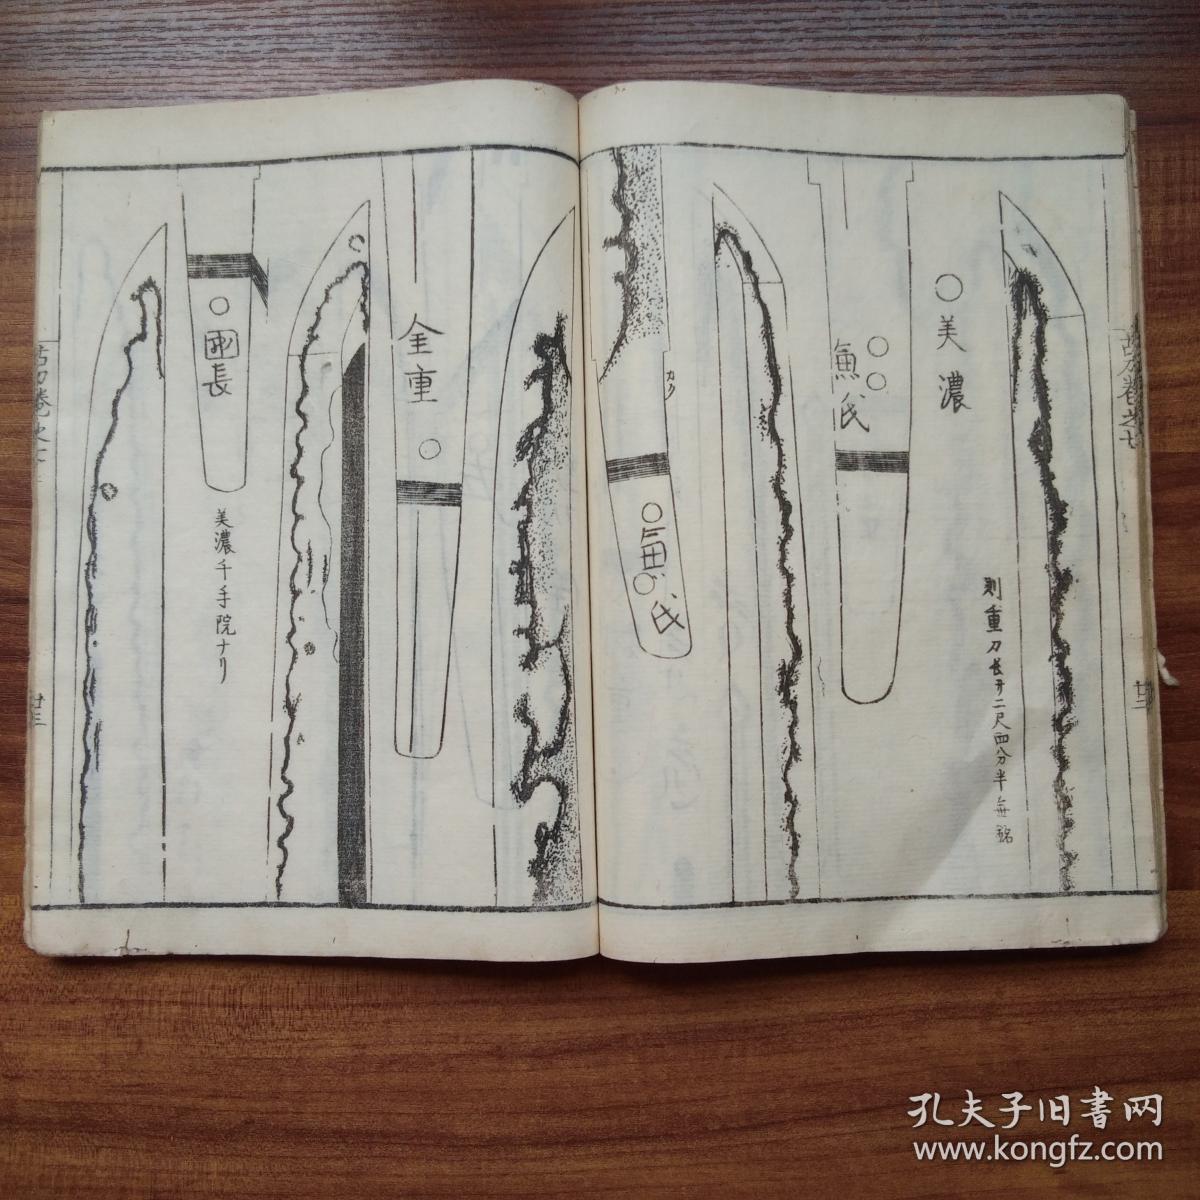 古刀巻之七
廿二
○美濃
則重刀長サ二尺四分半無銘
兼氏
カク
氏
金重
長
美濃千手院ナリ
古刀巻之七
廿三
孔夫子旧书网
www.kongfz.com